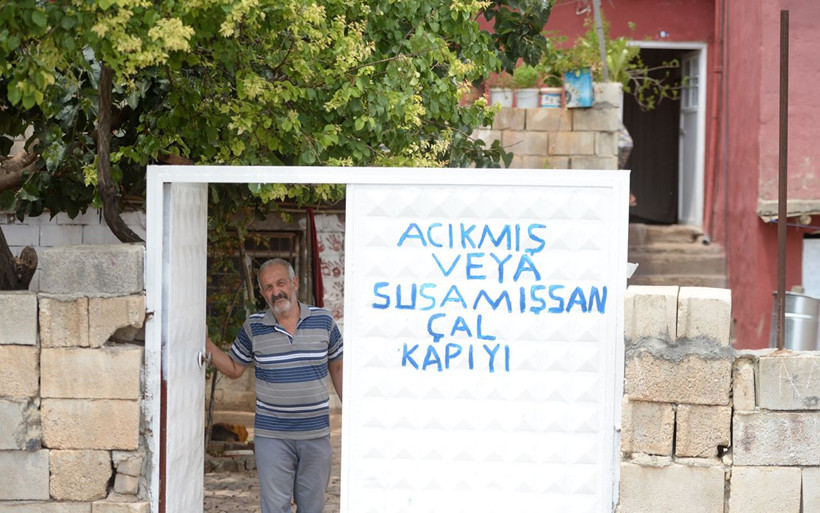 ACIKMIŞ
VEYA
SUSAMIŞSAN
ÇAL
KAPIYI